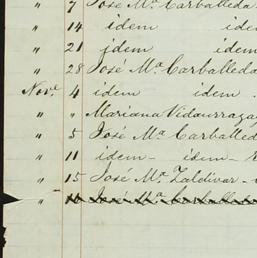 " 7 José Mª Carballeda
" 14 idem idem
" 21 idem idem
" 28 José Mª Carballeda
Nove. 4 idem idem.
" " Mariana Vidaurrazag
" 5 José Mª Carballed
" 11 idem - idem -
" 15 José Mª Zaldivar -
" 16 José Mª Carballeda